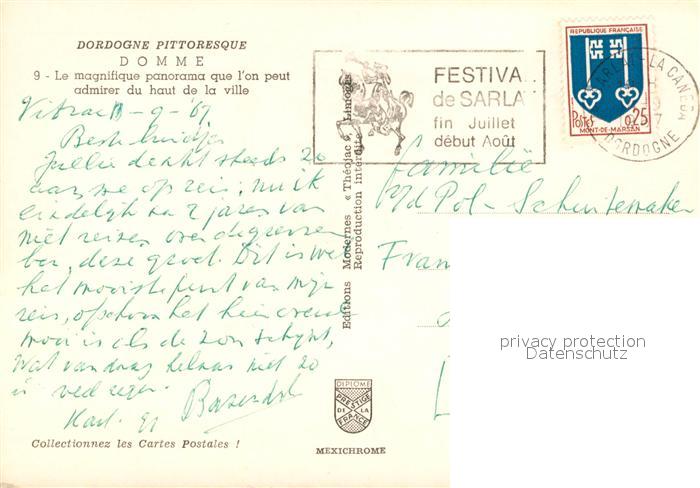 DORDOGNE PITTORESQUE
DOMME
9 - Le magnifique panorama que l'on peut
admirer du haut de la ville
Vitrac -9-'67
Beste
Jullie denkt steeds zo
op reis, nu ik
eindelijk na 7 jaren van
niet reizen over de grenzen
ben, deze groet. Dit is wel
het mooiste punt van mijn
reis, ofschoon het hier overal
mooi is als de zon schijnt,
wat vandaag helaas niet zo
is veel regen.
Hart. gr
Collectionnez les Cartes Postales !
Editions Modernes « Théojac », Limoges
Reproduction interdite
DIPLOME
PRESTIGE
DE LA
FRANCE
MEXICHROME
FESTIVA
de SARLA
fin Juillet
début Août
REPUBLIQUE FRANCAISE
Postes 0,25
MONT-DE-MARSAN
SARLAT-LA CANEDA
DORDOGNE
Familie
v/d Pol - Schuitemaker
Fran
privacy protection
Datenschutz